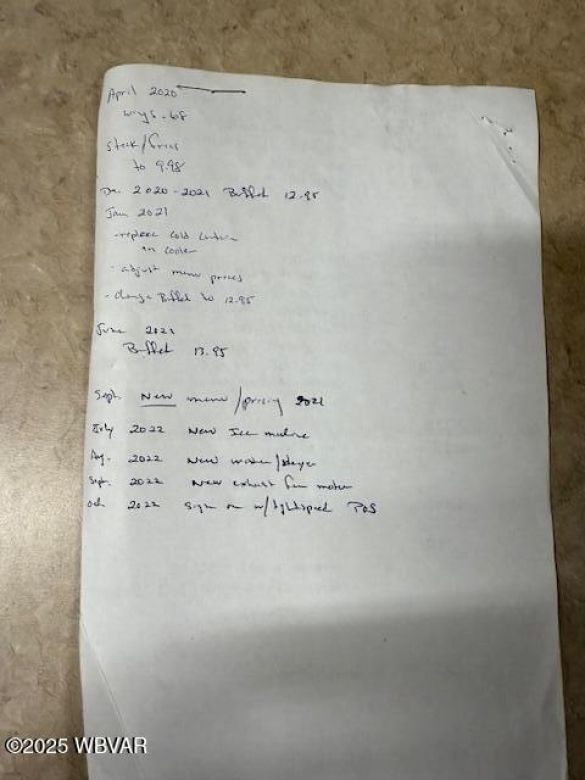 April 2020
wings .68
steak/fries
to 9.98
Dec 2020-2021 Buffet 12.95
Jan 2021
-replace cold curtain
in cooler
- adjust menu prices
- change Buffet to 12.95
June 2021
Buffet 13.95
Sept. New menu/pricing 2021
July 2022 New Ice machine
Aug. 2022 New washer/dryer
Sept. 2022 New exhaust fan motor
Oct. 2022 sign on w/lightspeed POS
©2025 WBVAR